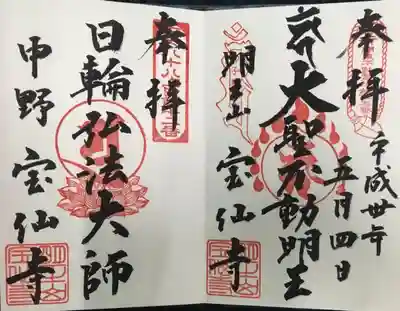 奉拝
平成卅年
五月四日
大聖不動明王
明王山
宝仙寺
奉拝
日輪弘法大師
中野
宝仙寺